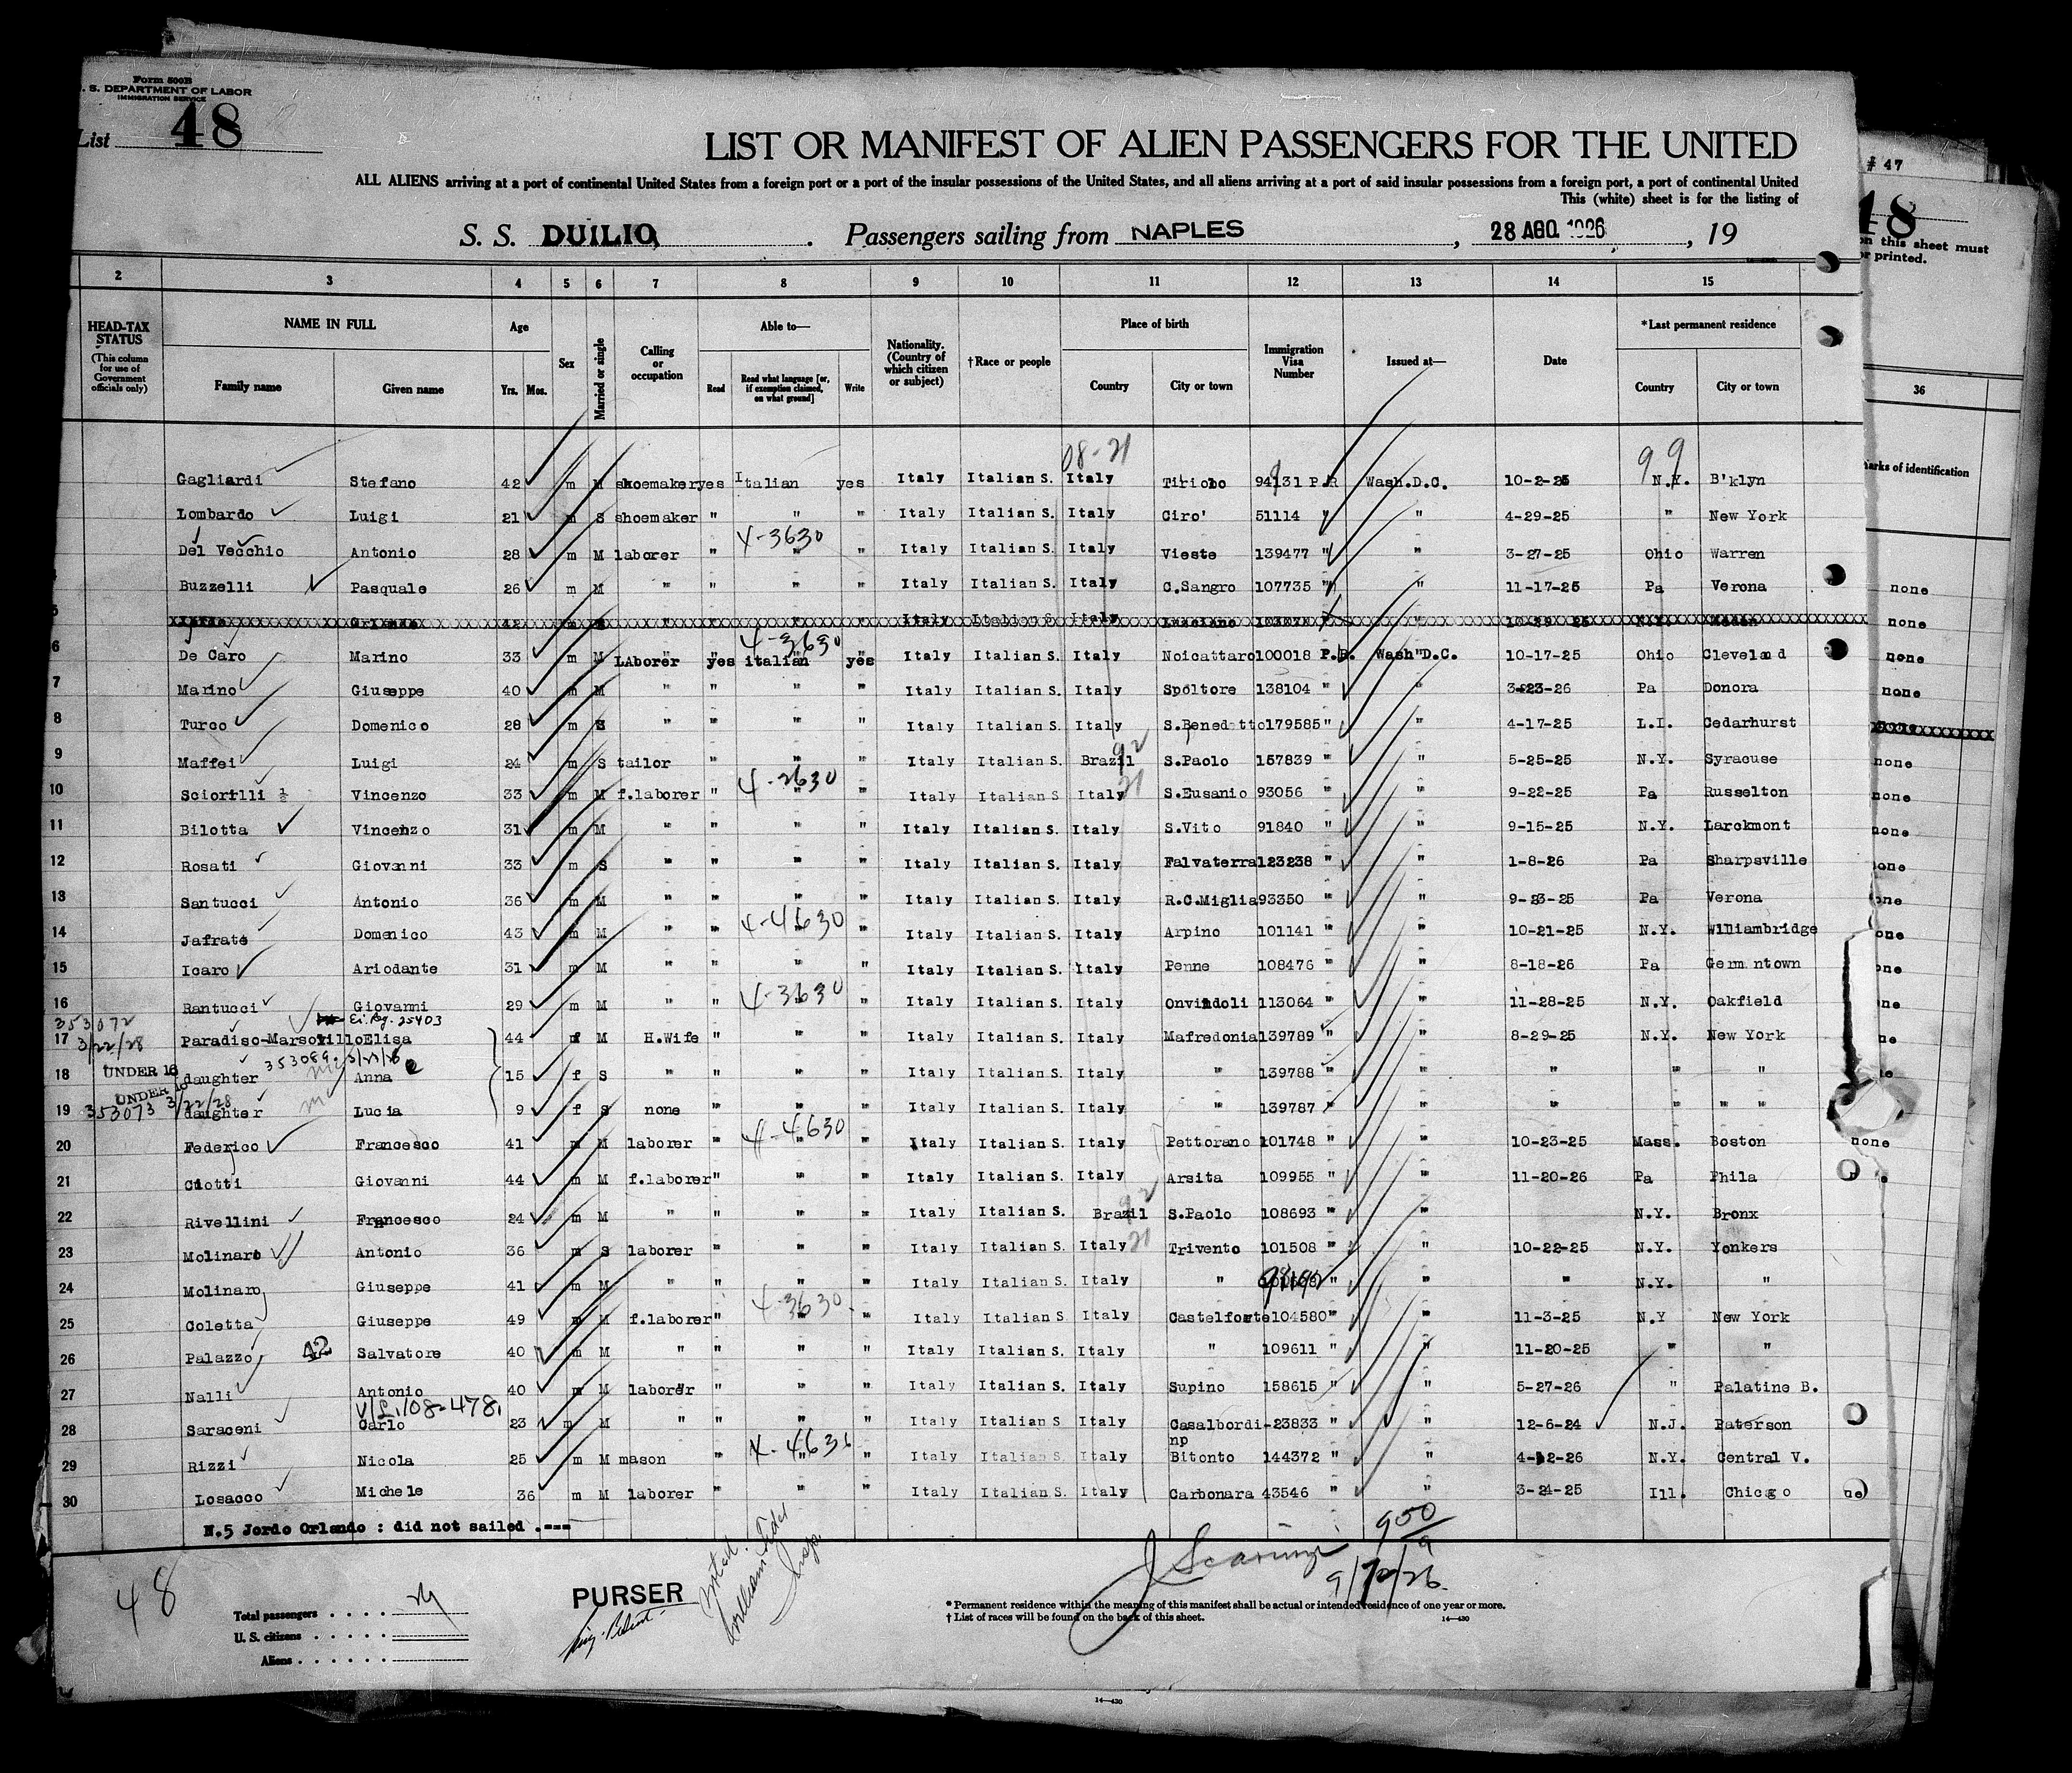 Form 500B
U. S. DEPARTMENT OF LABOR
IMMIGRATION SERVICE
List 48
LIST OR MANIFEST OF ALIEN PASSENGERS FOR THE UNITED
ALL ALIENS arriving at a port of continental United States from a foreign port or a port of the insular possessions of the United States, and all aliens arriving at a port of said insular possessions from a foreign port, a port of continental United
This (white) sheet is for the listing of
S. S. DUILIO, Passengers sailing from NAPLES, 28 AGO. 1926, 19
# 47
48
on this sheet must
or printed.
2 3 4 5 6 7 8 9 10 11 12 13 14 15 36
HEAD-TAX STATUS (This column for use of Government officials only)
NAME IN FULL Family name Given name
Age Yrs. Mos.
Sex
Married or single
Calling or occupation
Able to— Read Read what language [or, if exemption claimed, on what ground] Write
Nationality. (Country of which citizen or subject)
†Race or people
Place of birth Country City or town
Immigration Visa Number
Issued at—
Date
*Last permanent residence Country City or town
marks of identification
08-21
99
Gagliardi Stefano 42 m M shoemaker yes Italian yes Italy Italian S. Italy 94131 P.R Wash.D.C. 10-2-25 N.Y. B'klyn
Lombardo Luigi 21 m S shoemaker " " " Italy Italian S. Italy Ciro' 51114 " " 4-29-25 " New York
4-3630
Del Vecchio Antonio 28 m M laborer " " " Italy Italian S. Italy Vieste 139477 " " 3-27-25 Ohio Warren
Buzzelli Pasquale 26 m M " " " " Italy Italian S. Italy C.Sangro 107735 " " 11-17-25 Pa Verona none
5 Orlando 42 m Italy Italian S. Italy none
4-3630
6 De Caro Marino 33 m M LAborer yes italian yes Italy Italian S. Italy Noicattaro 100018 P.R. Wash"D.C. 10-17-25 Ohio Cleveland none
7 Marino Giuseppe 40 m M " " " " Italy Italian S. Italy Spoltore 138104 " " 3-23-26 Pa Donora none
8 Turco Domenico 28 m S " " " " Italy Italian S. Italy S.Benedetto 179585 " " 4-17-25 L.I. Cedarhurst
92
9 Maffei Luigi 24 m S tailor " " " Italy Italian S. Brazil S.Paolo 157839 " " 5-25-25 N.Y. Syracuse none
4-2630
21
10 Sciorilli Vincenzo 33 m M f.laborer " " " Italy Italian S Italy S.Eusanio 93056 " " 9-22-25 Pa Russelton none
11 Bilotta Vincenzo 31 m M " " " " Italy Italian S. Italy S.Vito 91840 " " 9-15-25 N.Y. Larckmont none
12 Rosati Giovanni 33 m S " " " " Italy Italian S. Italy Falvaterra 123238 " " 1-8-26 Pa Sharpsville one
13 Santucci Antonio 36 m M " " " " Italy Italian S. Italy R.C.Miglia 93350 " " Pa Verona one
4-4630
14 Jafrate Domenico 43 m M " " " " Italy Italian S. Italy Arpino 101141 " " 10-21-25 N.Y. Williambridge one
15 Icaro Ariodante 31 m M " " " " Italy Italian S. Italy Penne 108476 " " 8-18-26 Pa Germ ntown ne
4-3630
16 Rantucci Giovanni 29 m M " " " " Italy Italian S. Italy Onvindoli 113064 " " 11-28-25 N.Y. Oakfield ne
353072 3/22/28 Ei. Reg. 25403
17 Paradiso-Marsovillo Elisa 44 f M H.Wife " " " Italy Italian S. Italy Mafredonia 139789 " " 8-29-25 N.Y. New York ne
353089
18 UNDER 16 daughter Anna 15 f S " " " " Italy Italian S. Italy " 139788 " " " "
UNDER 16
19 353073 3/22/28 daughter Lucia 9 f S none " " " Italy Italian S. Italy " 139787 " " " " " "
4-4630
20 Federico Francesco 41 m M laborer " " " Italy Italian S. Italy Pettorano 101748 " " 10-23-25 Mass. Boston none
21 Ciotti Giovanni 44 m M f.laborer " " " Italy Italian S. Italy Arsita 109955 " " 11-20-26 Pa Phila
92
22 Rivellini Francesco 24 m M " " " " Italy Italian S. Brazil S.Paolo 108693 " " N.Y. Bronx
23 Molinaro Antonio 36 m S laborer " " " Italy Italian S. Italy 21 Trivento 101508 " " 10-22-25 N.Y. Yonkers
24 Molinaro Giuseppe 41 m M " " " " Italy Italian S. Italy " " " " N.Y. "
4-3630
25 Coletta Giuseppe 49 m M f.laborer " " " Italy Italian S Italy Castelforte 104580 " " 11-3-25 N.Y New York
26 Palazzo 42 Salvatore 40 m M " " " " Italy Italian S. Italy " 109611 " " 11-20-25 " "
27 Nalli Antonio 40 m M laborer " " " Italy Italian S. Italy Supino 158615 " " 5-27-26 " Palatine B.
V/L 108-478
28 Saraceni Carlo 23 m M " " " " Italy Italian S. Italy Casalbordi- 23833 " " 12-6-24 N.J. Paterson
np
29 Rizzi Nicola 25 m M mason " " " Italy Italian S Italy Bitonto 144372 " " N.Y. Central V.
30 Losacco Michele 36 m M laborer " " " Italy Italian S. Italy Carbonara 43546 " " 3-24-25 Ill. Chicago ne
N.5 Jordo Orlando : did not sailed .---
950
9
9/10/26.
48
Total passengers
U. S. citizens
Aliens
PURSER
noted.
William
Insp.
J Scaringi
* Permanent residence within the meaning of this manifest shall be actual or intended residence of one year or more.
† List of races will be found on the back of this sheet.
14—430
14—430